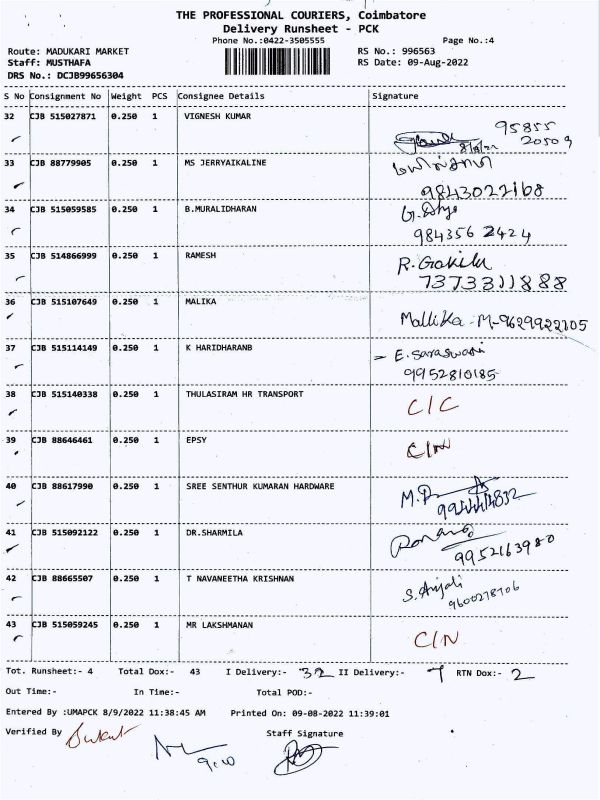 THE PROFESSIONAL COURIERS, Coimbatore
Delivery Runsheet - PCK
Phone No.:0422-3505555 Page No.:4
Route: MADUKARI MARKET RS No.: 996563
Staff: MUSTHAFA RS Date: 09-Aug-2022
DRS No.: DCJB99656304
S No Consignment No Weight PCS Consignee Details Signature
32 CJB 515027871 0.250 1 VIGNESH KUMAR
95855
20509
8/9/22
33 CJB 88779905 0.250 1 MS JERRYAIKALINE
9843022168
34 CJB 515059585 0.250 1 B.MURALIDHARAN
984356 2424
35 CJB 514866999 0.250 1 RAMESH R. Gokila
7373311888
36 CJB 515107649 0.250 1 MALIKA
Mallika - M-9629922105
37 CJB 515114149 0.250 1 K HARIDHARANB
- E. Saraswani
9952810185
38 CJB 515140338 0.250 1 THULASIRAM HR TRANSPORT
C/C
39 CJB 88646461 0.250 1 EPSY
C/N
40 CJB 88617990 0.250 1 SREE SENTHUR KUMARAN HARDWARE
41 CJB 515092122 0.250 1 DR.SHARMILA
9952163980
42 CJB 88665507 0.250 1 T NAVANEETHA KRISHNAN
S. Anjali
9600278706
43 CJB 515059245 0.250 1 MR LAKSHMANAN
C/N
Tot. Runsheet:- 4 Total Dox:- 43 I Delivery:- 32 II Delivery:- 7 RTN Dox:- 2
Out Time:- In Time:- Total POD:-
Entered By :UMAPCK 8/9/2022 11:38:45 AM Printed On: 09-08-2022 11:39:01
Verified By Staff Signature
9:10